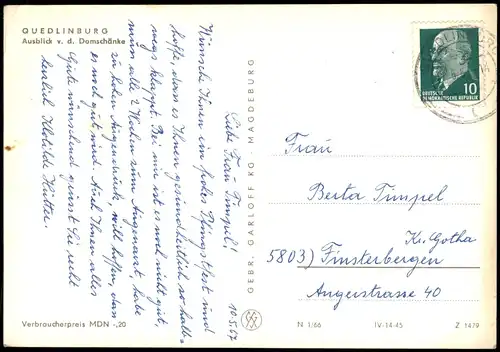 QUEDLINBURG
Ausblick v. d. Domschänke
10.5.67
Liebe Frau Timpel!
Wünsche Ihnen ein frohes Pfingstfest und
hoffe, dass es Ihnen gesundheitlich so halb-
wegs klappt. Bei mir ist es noch nicht gut,
muss alle 2 Wochen zum Augenarzt, habe
zu hohen Augendruck, will hoffen, dass
es noch gut wird. Auch Ihnen alles
Gute wünschend grüsst Sie recht
herzlich Klotilde Hütter.
Verbraucherpreis MDN -,20
GEBR. GARLOFF KG. MAGDEBURG
10
DEUTSCHE
DEMOKRATISCHE REPUBLIK
Frau
Berta Timpel
Kr. Gotha
5803) Finsterbergen
Angerstrasse 40
N 1/66 IV-14-45 Z 1479